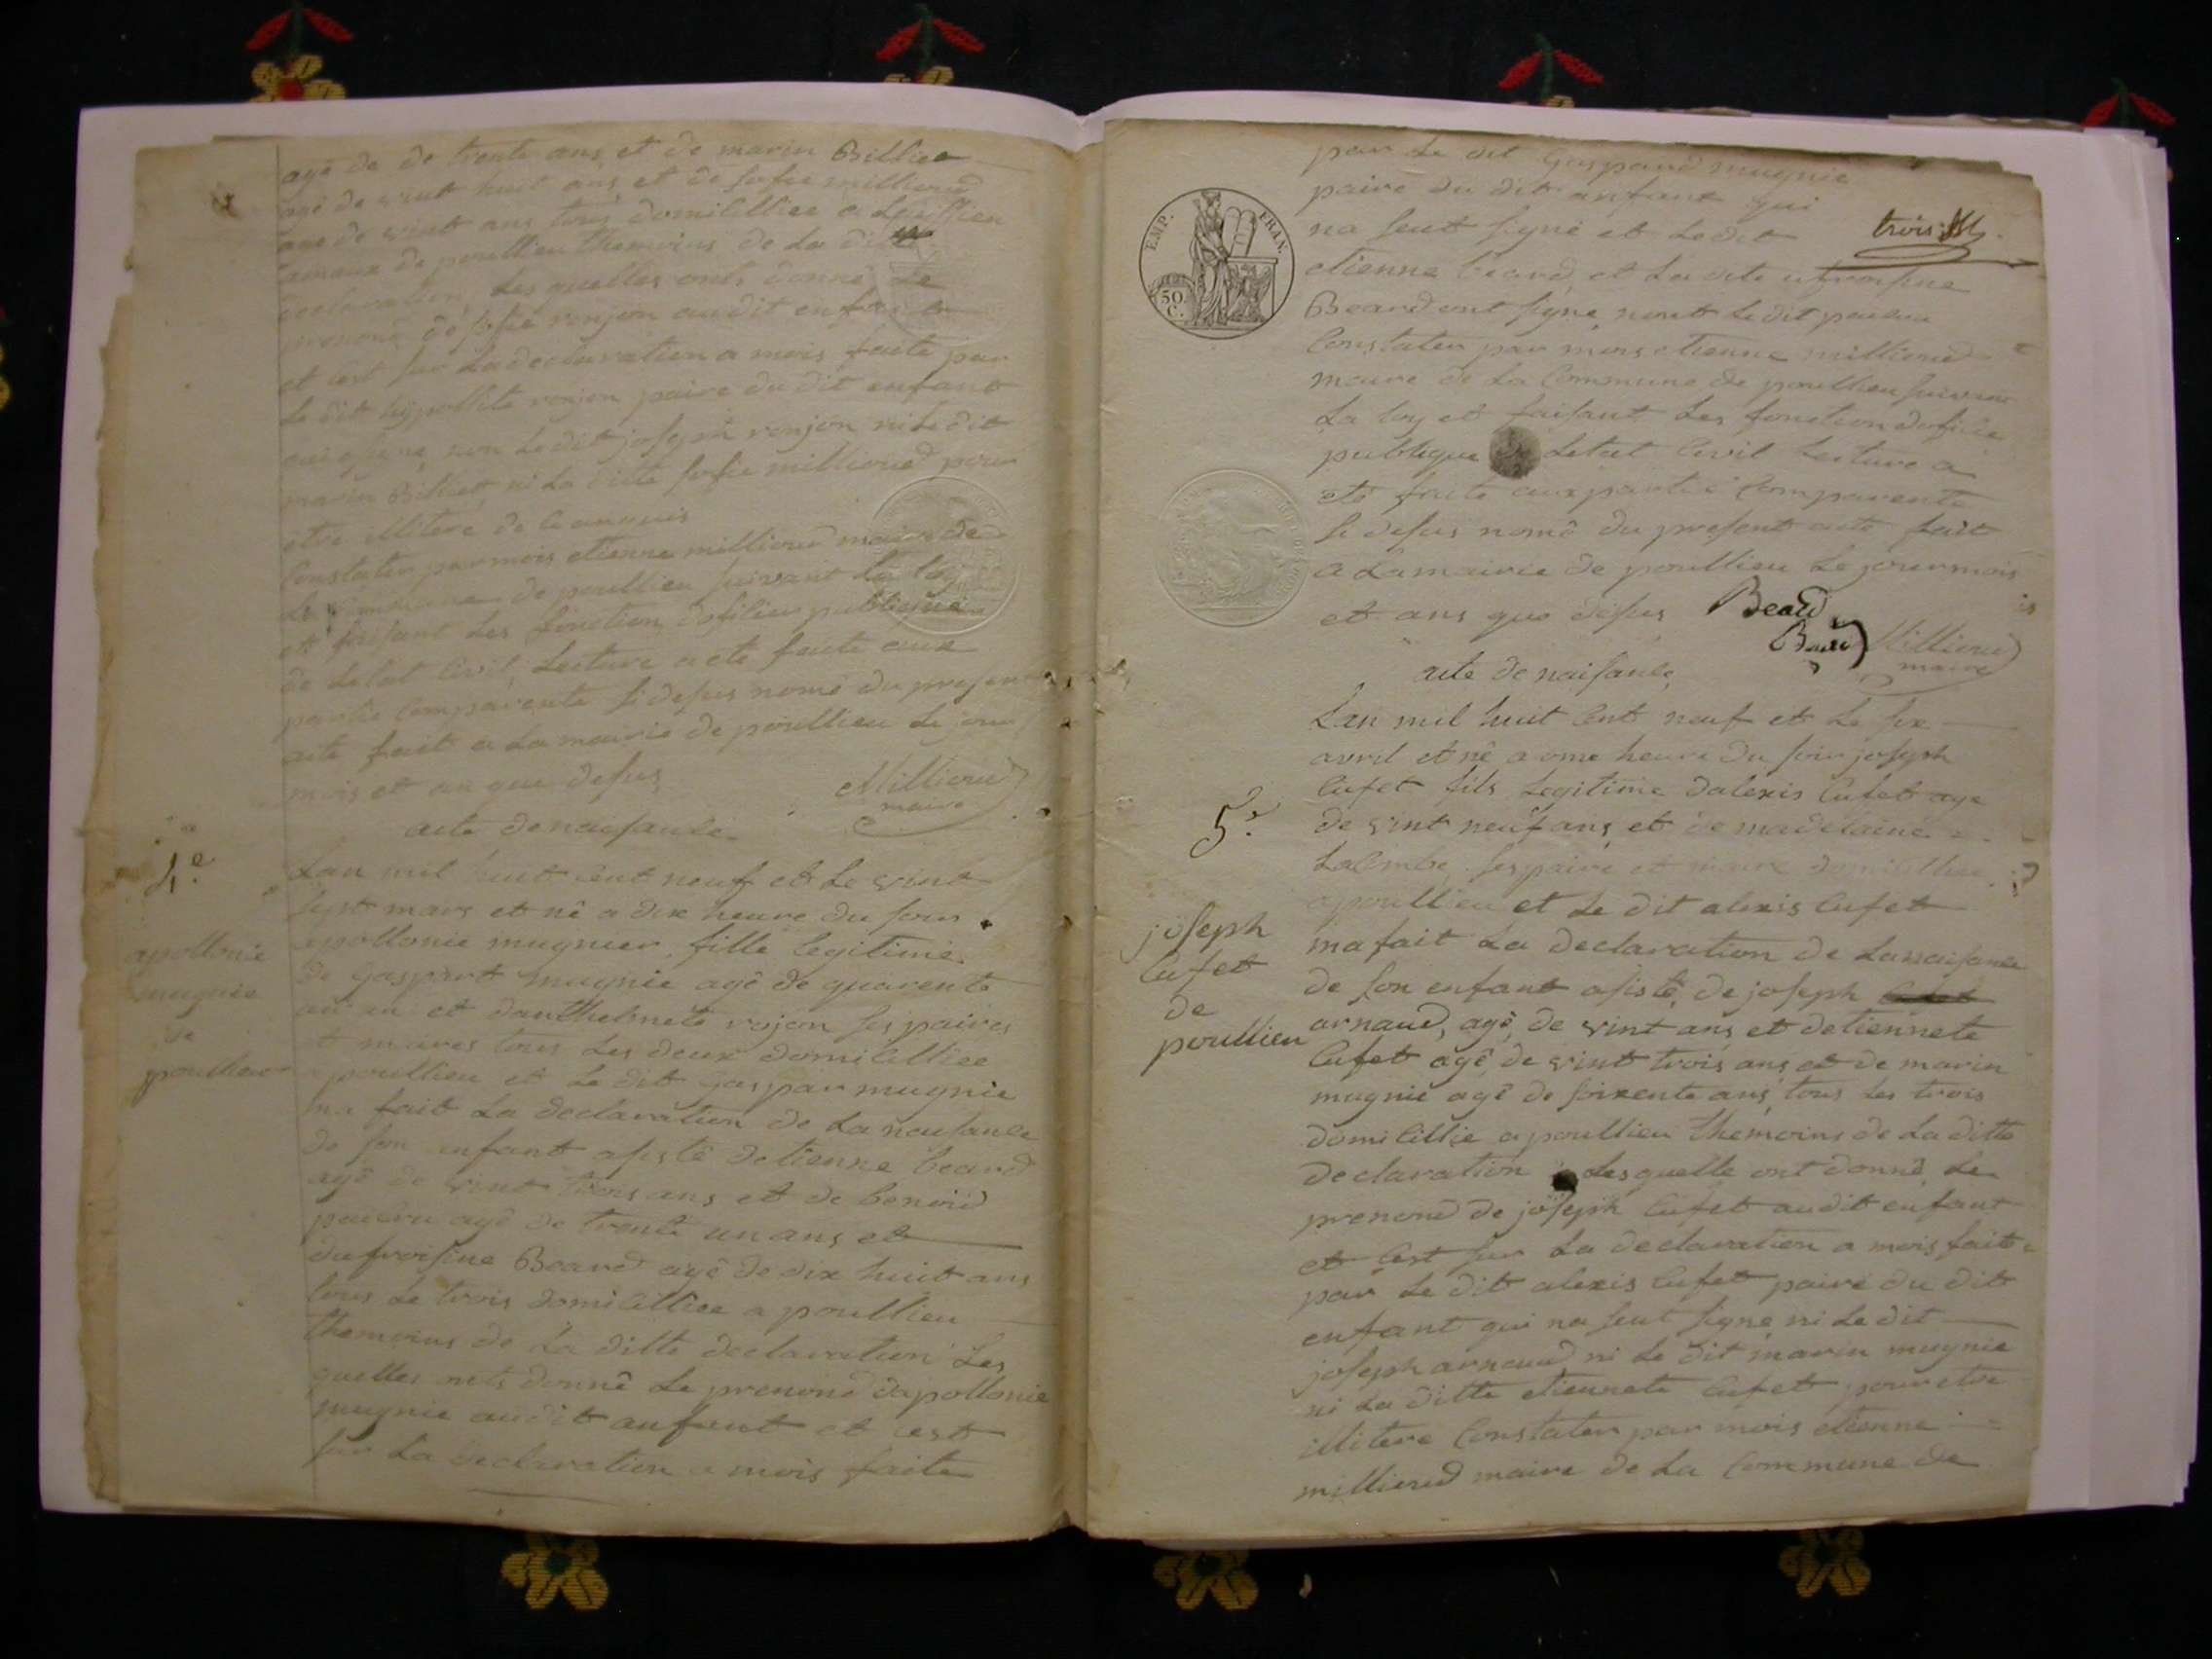 agé de de trente ans et de marin Billiet
agé de vint huit ans et de sofie millioud
age de vint ans tous domicilliee a
hamaux de poullieu themoins de la ditte
declaration Les quelles onts donné Le
prenoné de sofie ronjon audit enfant
et cest sur La declaration a mois faite par
Le dit hypollite ronjon paire du dit enfant
qui non Le dit joseph ronjon ni Le dit
marin Billiet ni La ditte sofie millioud pour
être illitere de ce anquis
Constater par mois etienne millioud maire de
La Commune de poullieu suivant La loy
et faisant Les fonction dofisier publique
de Letat Civil Lecture a eté faite aux
partie Comparente si desus nomé du present
acte fait a La mairie de poullieu Le jour
mois et an que desus
Millioud
maire
acte de naisance
4e
Lan mil huit cent neuf et Le vint
sept mars et né a dix heure du soir
apollonie mugnier fille legitime
de gaspart mugnie agé de quarente
un an et danthelmete rojon ses paires
et maires tous Les deux domicilliee
a poullieu et Le dit gaspar mugnie
ma fait La declaration de La naisance
de son enfant asisté detienne beard
agé de vint trois ans et de benoid
agé de trente un ans et
dufroisine Beard agé de dix huit ans
tous Le trois domicilliee a poullieu
themoins de La ditte declaration Les
quelles onts donné Le prenoné dapollonie
mugnie audit anfant et cest
sur La declaration a mois faite
apollonie
mugnie
de
poullieu
par Le dit gaspard mugnie
paire du dit anfant qui
na seut signé et Le dit
trois
EMP. FRAN.
50 C.
etienne beard et La dite ufroisine
Beard ont signé nont Le dit
Constater par mois etienne millioud
maire de La Commune de poullieu suivant
La loy et faisant Les fonction dofisie
publique de Letat Civil Lecture a
eté faite aux partie Comparente
si desus nomé du present acte fait
a La mairie de poullieu Le jour mois
et ans que desus
Beard
Beard
Millioud
maire
acte de naisance
5e
Lan mil huit Cent neuf et Le six
avril et né a onse heure du soir joseph
Cufet fils Legitime dalexis Cufet age
de vint neuf ans et de madelaine
Lacombe ses paire et maire domicilliee
a poullieu et Le dit alexis Cufet
ma fait La declaration de La naisance
de son enfant asisté de joseph
arnaud, agé de vint ans et detiennete
Cufet agé de vint trois ans et de marin
mugnié agé de soixente ans tous Les trois
domicillie a poullieu themoins de La ditte
declaration Les quelle ont donné Le
prenond de joseph Cufet audit enfant
et Cest sur La declaration a mois fait
par Le dit alexis Cufet paire du dit
enfant qui na seut signé ni Le dit
joseph arnaud ni Le dit marin mugnie
ni La ditte etiennete Cufet pour etre
illitere Constater par mois etienne
millioud maire de La Commune de
joseph
Cufet
de
poullieu